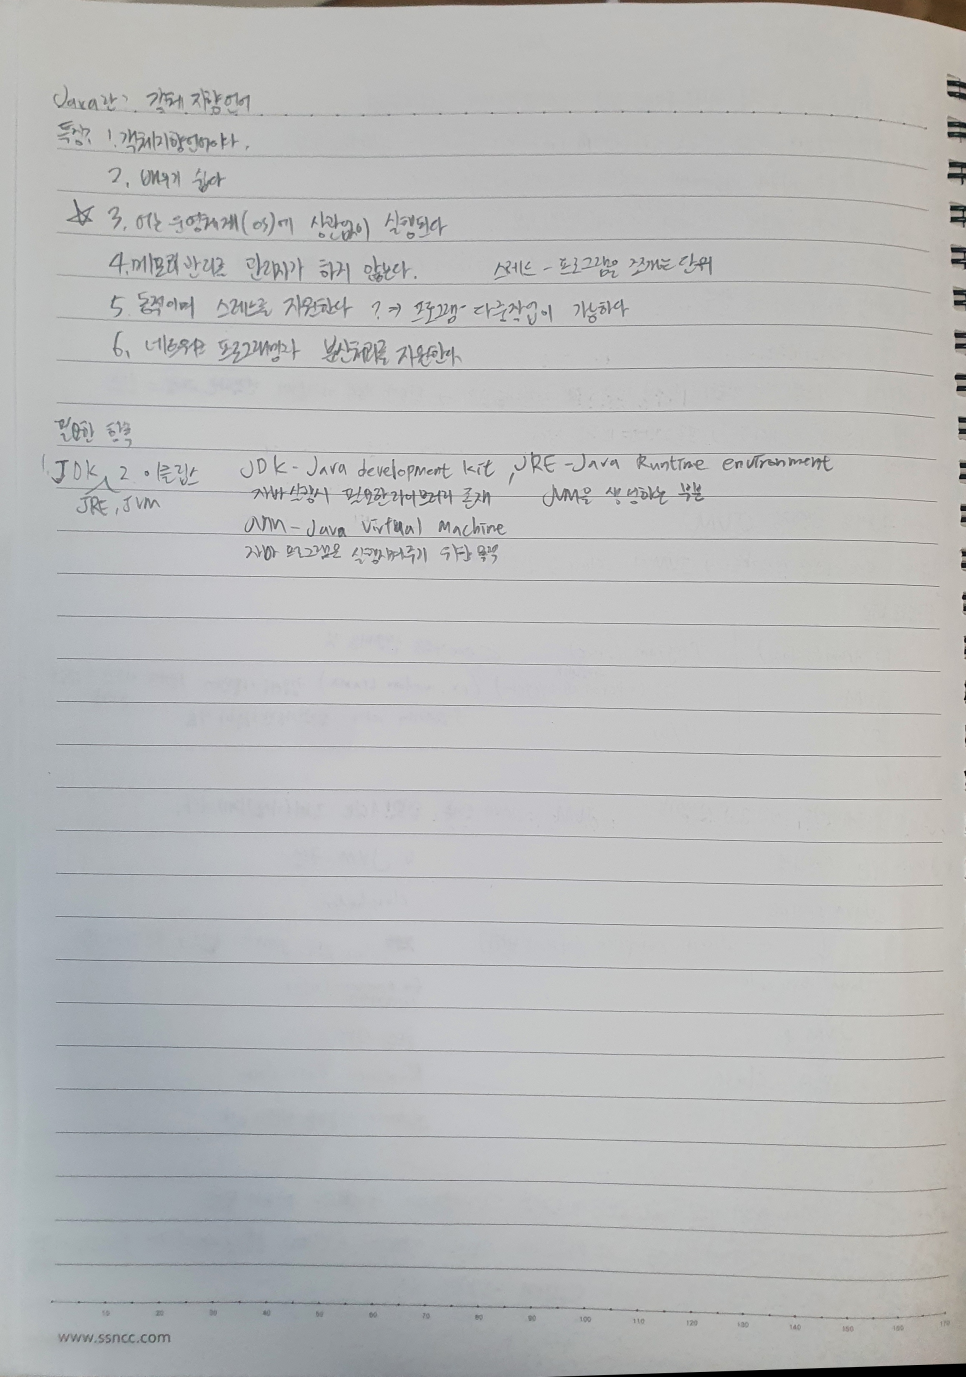 Java란? 객체 지향언어
특징? 1. 객체지향언어이다.
2. 배우기 쉽다
☆ 3. 어느 운영체제(OS)에 상관없이 실행된다
4. 메모리 관리를 관리자가 하지 않는다. 스레드 - 프로그램을 쪼개는 단위
5. 동적이며 스레드를 지원한다 ? → 프로그램 다중작업이 가능하다
6. 네트워크 프로그래밍과 분산처리를 지원한다.
필요한 항목
1. JDK, 2 이클립스 JDK - Java development kit, JRE - Java Runtime environment
JRE, JVM 자바 실행시 필요한 라이브러리 존재 JVM을 생성하는 부분
JVM - Java Virtual Machine
자바 프로그램을 실행시켜주기 위한 목적
10 20 30 40 50 60 70 80 90 100 110 120 130 140 150 160 170
www.ssncc.com